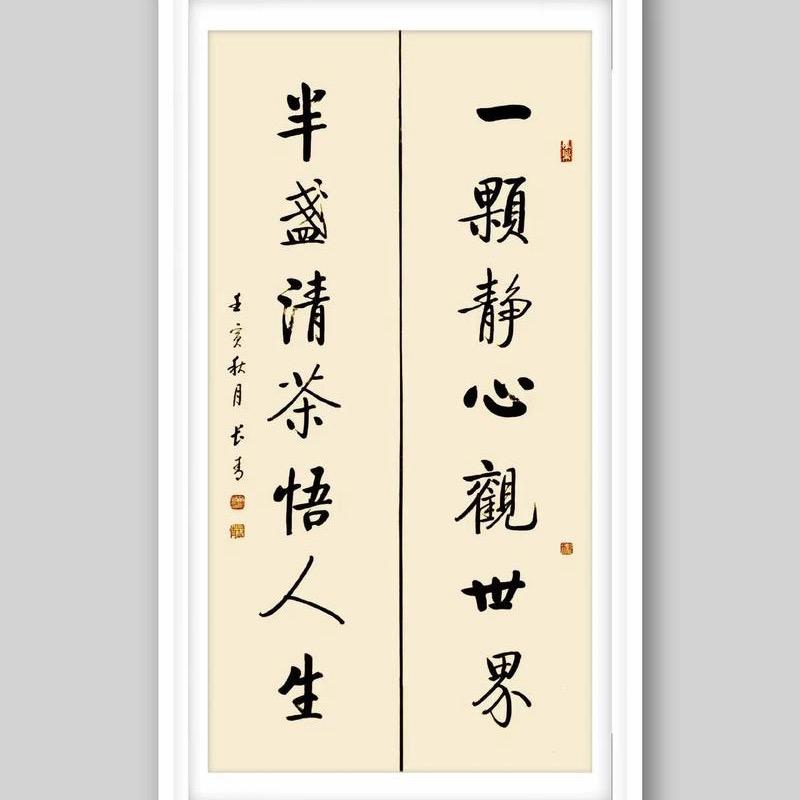 一顆静心觀世界
半盏清茶悟人生
壬寅秋月 长青